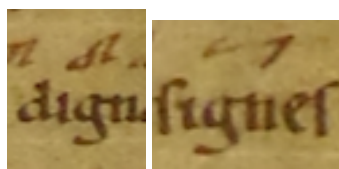 dign
signes